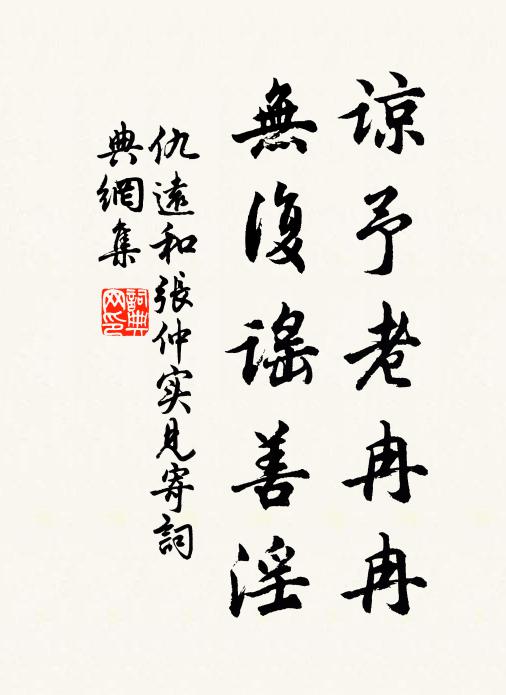 諒予老冉冉
無復謡善淫
仇遠和張仲实見寄詞
典網集
詞典网印